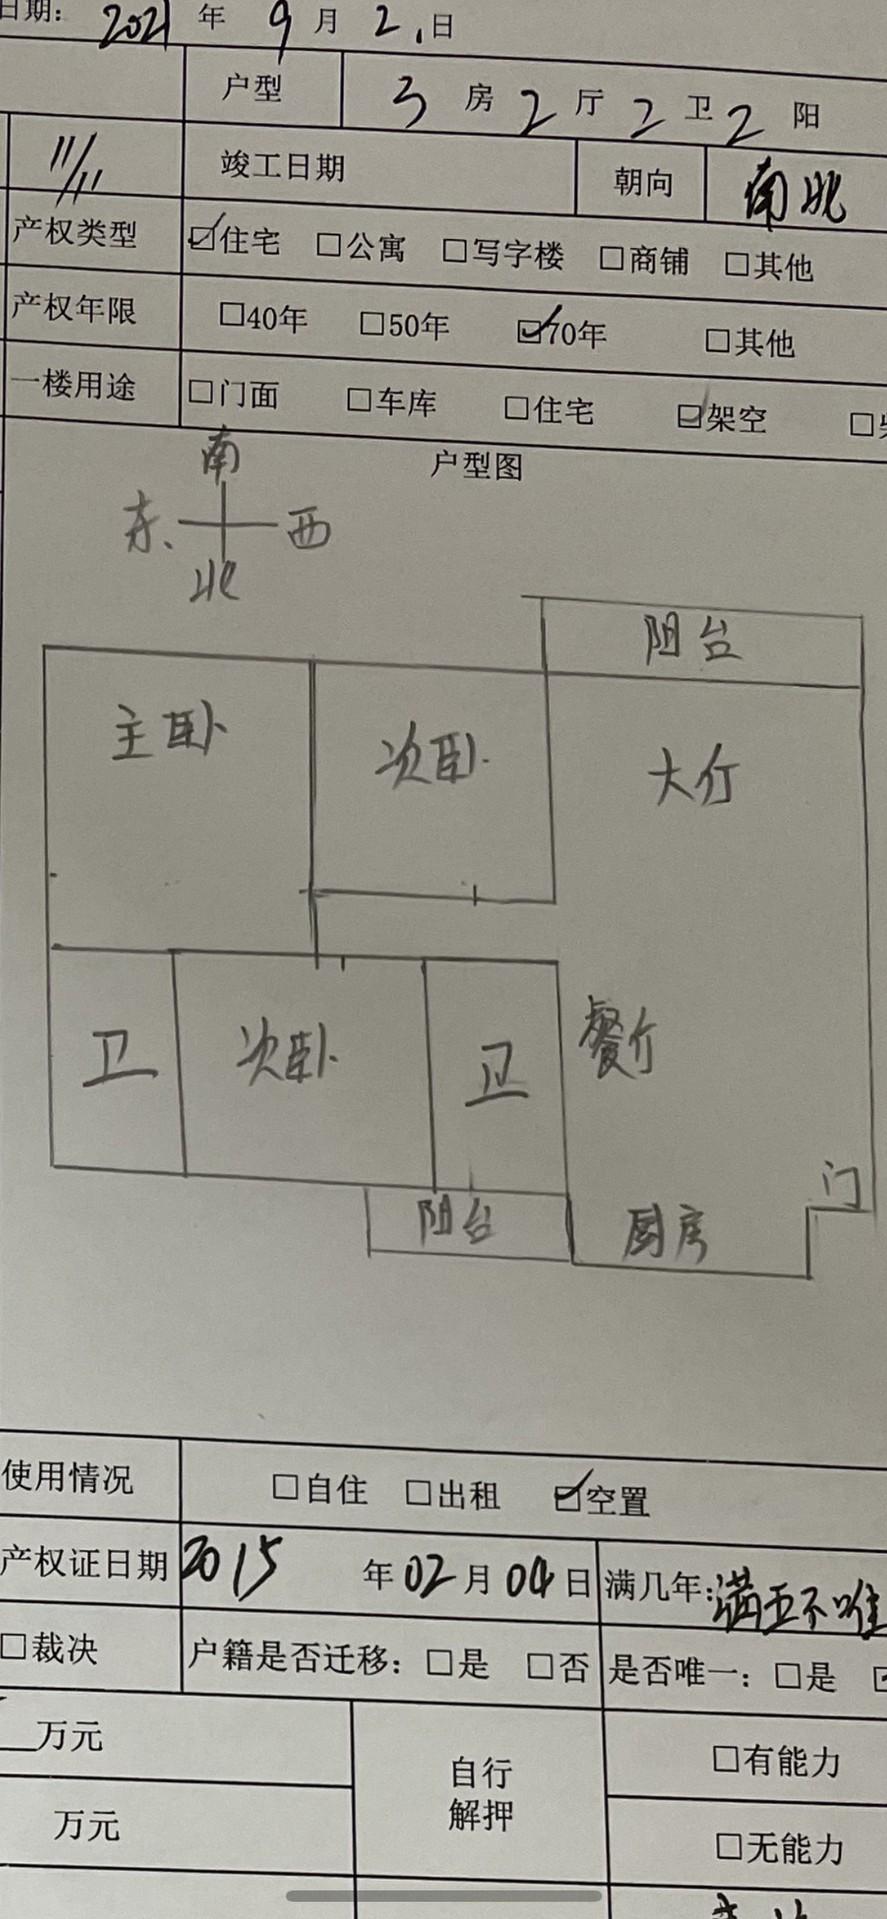 日期：2021 年 9 月 2.日
户型 3 房 2 厅 2 卫 2 阳
11/11 竣工日期 朝向 南北
产权类型 ☑住宅 □公寓 □写字楼 □商铺 □其他
产权年限 □40年 □50年 ☑70年 □其他
一楼用途 □门面 □车库 □住宅 ☑架空 □
户型图
南
东、 西
北
阳台
主卧 次卧 大厅
卫 次卧 卫 餐厅
门
阳台 厨房
使用情况 □自住 □出租 ☑空置
产权证日期 2015 年 02 月 04 日 满几年：满五不唯
□裁决 户籍是否迁移：□是 □否 是否唯一：□是
万元 自行 □有能力
万元 解押 □无能力